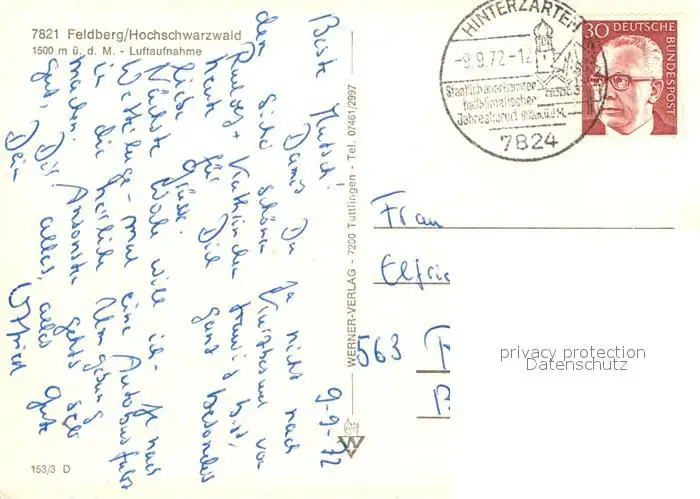 7821 Feldberg/Hochschwarzwald
1500 m ü. d. M. - Luftaufnahme
9-9-72
Beste
Damit Du ja nicht nach
den schönen von
Kathrinchen bist,
heute für Dich ganz besonders
liebe Grüße.
Nächste Woche will ich - je nach
eine Autobusfahrt
in die herrliche Umgebung
machen. Ansonsten geht's sehr
gut, Dir alles, alles Gute
Dein
WERNER-VERLAG - 7200 Tuttlingen - Tel. 07461/2997
W
153/3 D
HINTERZARTEN
-9.9.72-12
Staatlich anerkannter
heilklimatischer
Jahreskurort
7824
30 DEUTSCHE
BUNDESPOST
Frau
Elfrie
563
privacy protection
Datenschutz